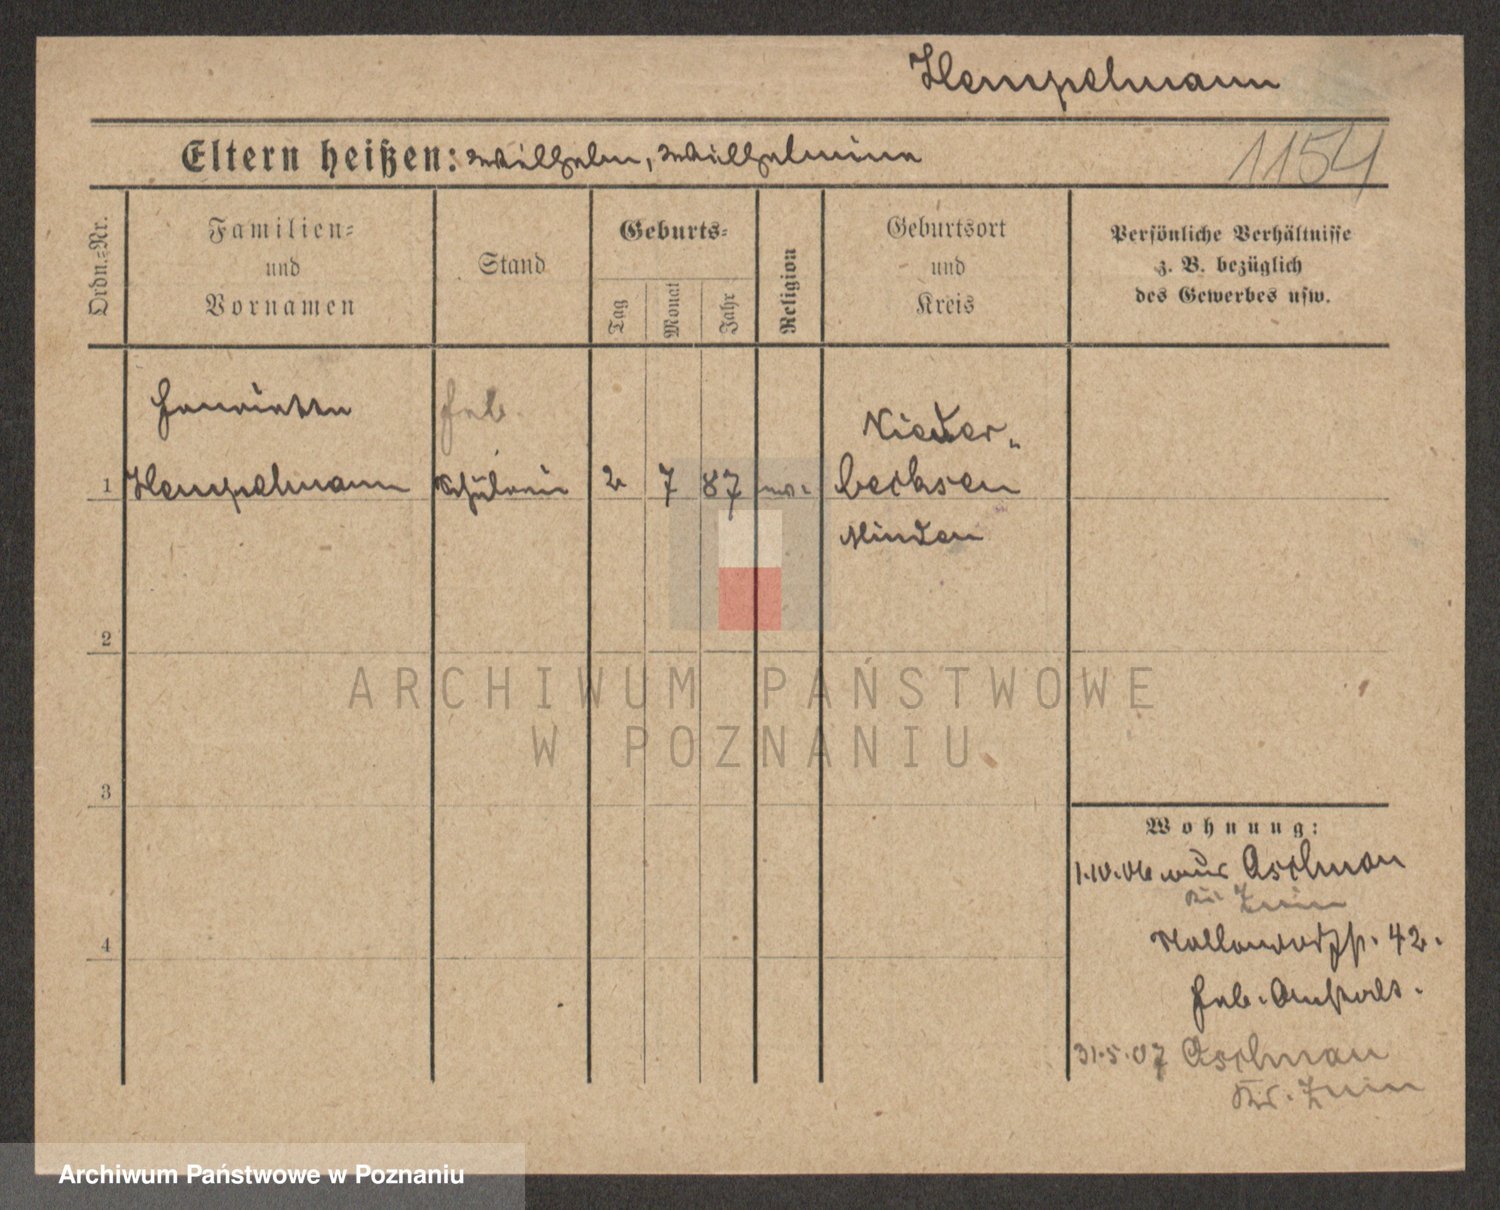 Hempelmann
1154
Eltern heißen: Wilhelm, Wilhelmine
Ordn.-Nr.
Familien-
und
Vornamen
Stand
Geburts-
Tag
Monat
Jahr
Religion
Geburtsort
und
Kreis
Persönliche Verhältnisse
z. B. bezüglich
des Gewerbes usw.
Henriette
Heb.
Nieder-
1 Hempelmann Schülerin 2 7 87 ev. becksen
Minden
2
ARCHIWUM PAŃSTWOWE
W POZNANIU
3
Wohnung:
1.10.06 aus
Kr. Znin
42.
Heb. Anstalt.
4
31.5.07
Kr. Znin
Archiwum Państwowe w Poznaniu